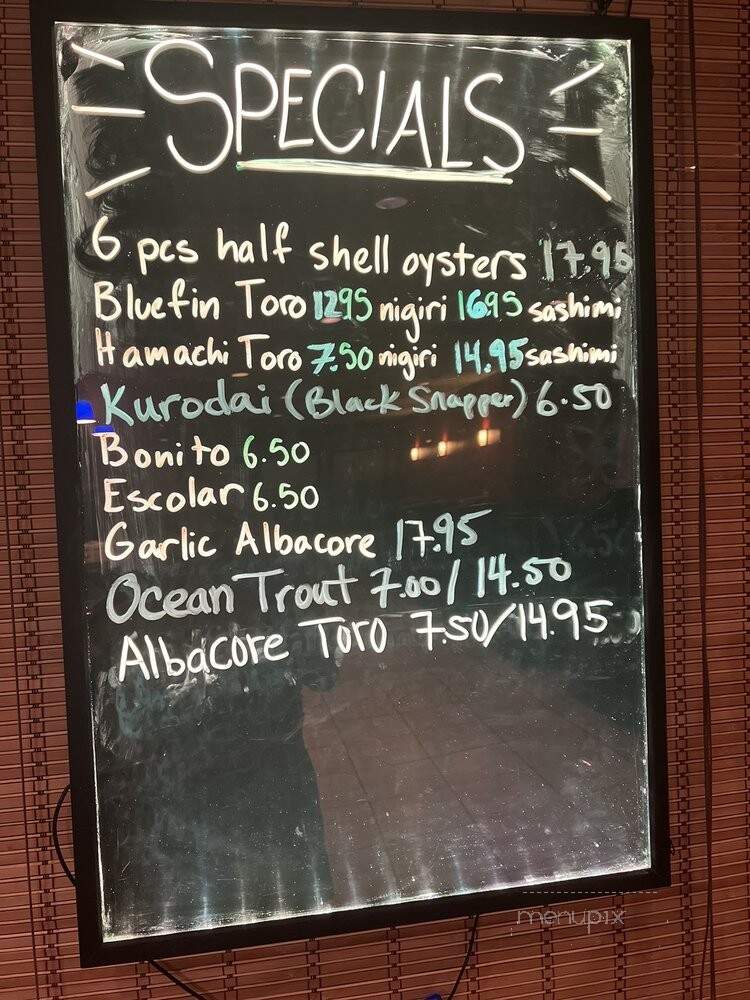 SPECIALS
6 pcs half shell oysters 17.95
Bluefin Toro 1295 nigiri 1695 sashimi
Hamachi Toro 7.50 nigiri 14.95 sashimi
Kurodai (Black Snapper) 6.50
Bonito 6.50
Escolar 6.50
Garlic Albacore 17.95
Ocean Trout 7.00/14.50
Albacore Toro 7.50/14.95
menupix